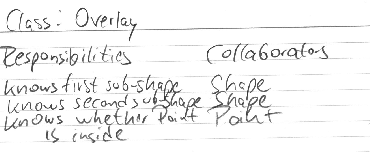 Class: Overlay
Responsibilities Collaborators
knows first sub-shape Shape
knows second sub-shape Shape
knows whether Point Point
is inside